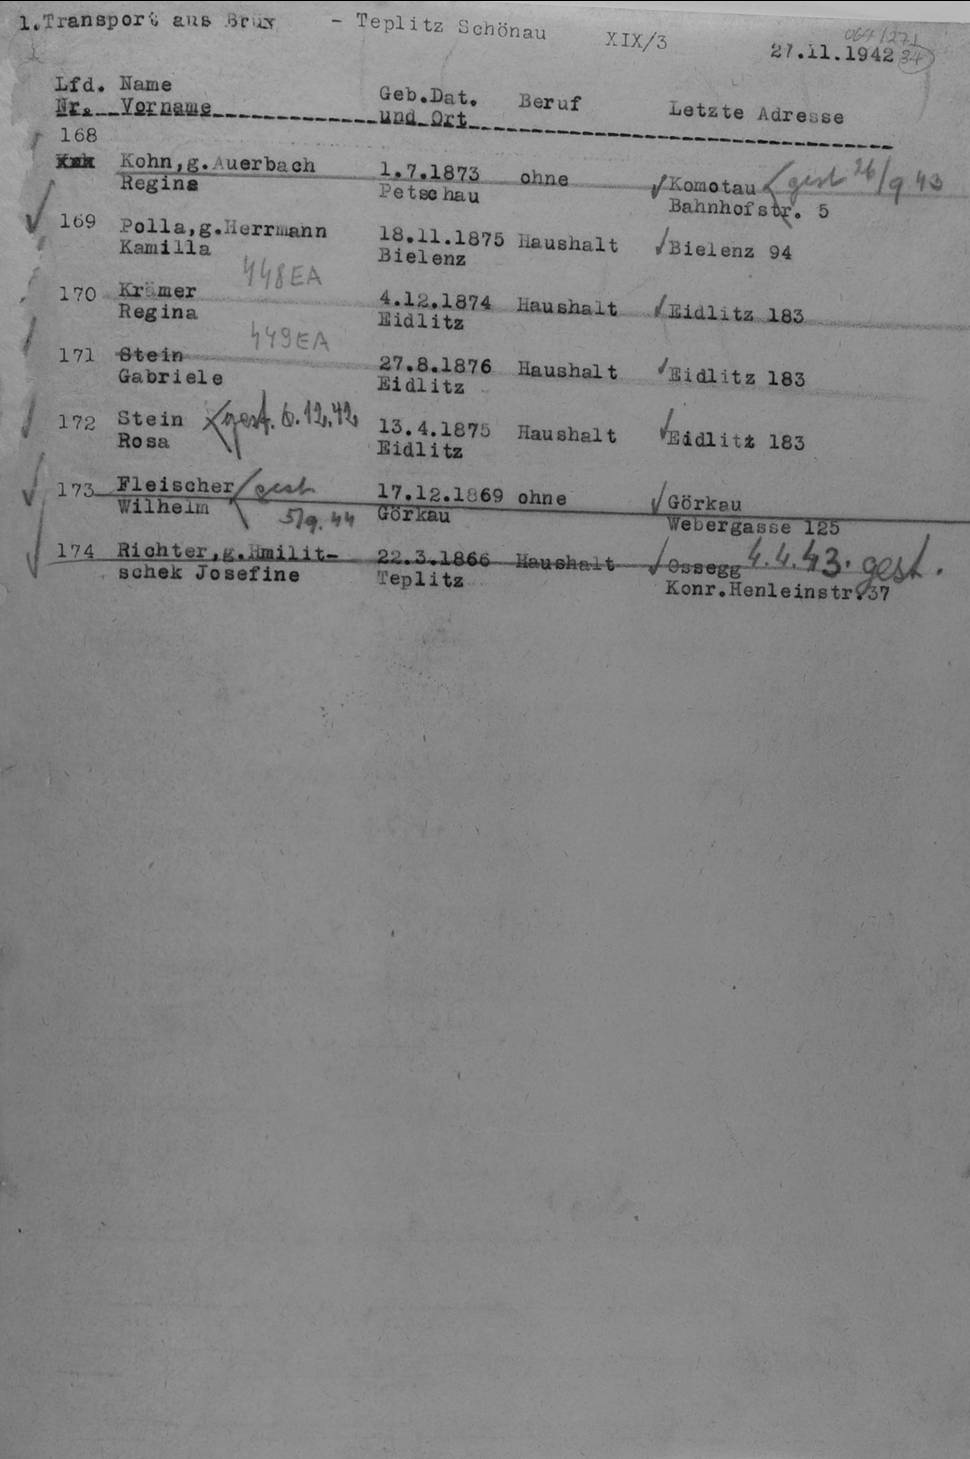 1.Transport aus Brüx - Teplitz Schönau XIX/3 27.11.1942 34
Lfd. Name Geb.Dat. Beruf Letzte Adresse
Nr. Vorname und Ort
168
xxx Kohn,g.Auerbach 1.7.1873 ohne Komotau gest 26/9 43
Regine Petschau Bahnhofstr. 5
169 Polla,g.Herrmann 18.11.1875 Haushalt Bielenz 94
Kamilla Bielenz
448EA
170 Krämer 4.12.1874 Haushalt Eidlitz 183
Regina Eidlitz
449EA
171 Stein 27.8.1876 Haushalt Eidlitz 183
Gabriele Eidlitz
172 Stein gest. 6.12.42 13.4.1875 Haushalt Eidlitz 183
Rosa Eidlitz
173 Fleischer gest 17.12.1869 ohne Görkau
Wilhelm 5/9.44 Görkau Webergasse 125
174 Richter,g.Hmilit- 22.3.1866 Haushalt Ossegg 4.4.43. gest.
schek Josefine Teplitz Konr.Henleinstr.37